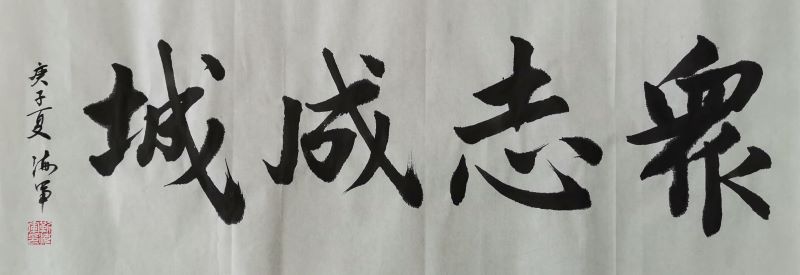 眾志成城
庚子夏 海軍